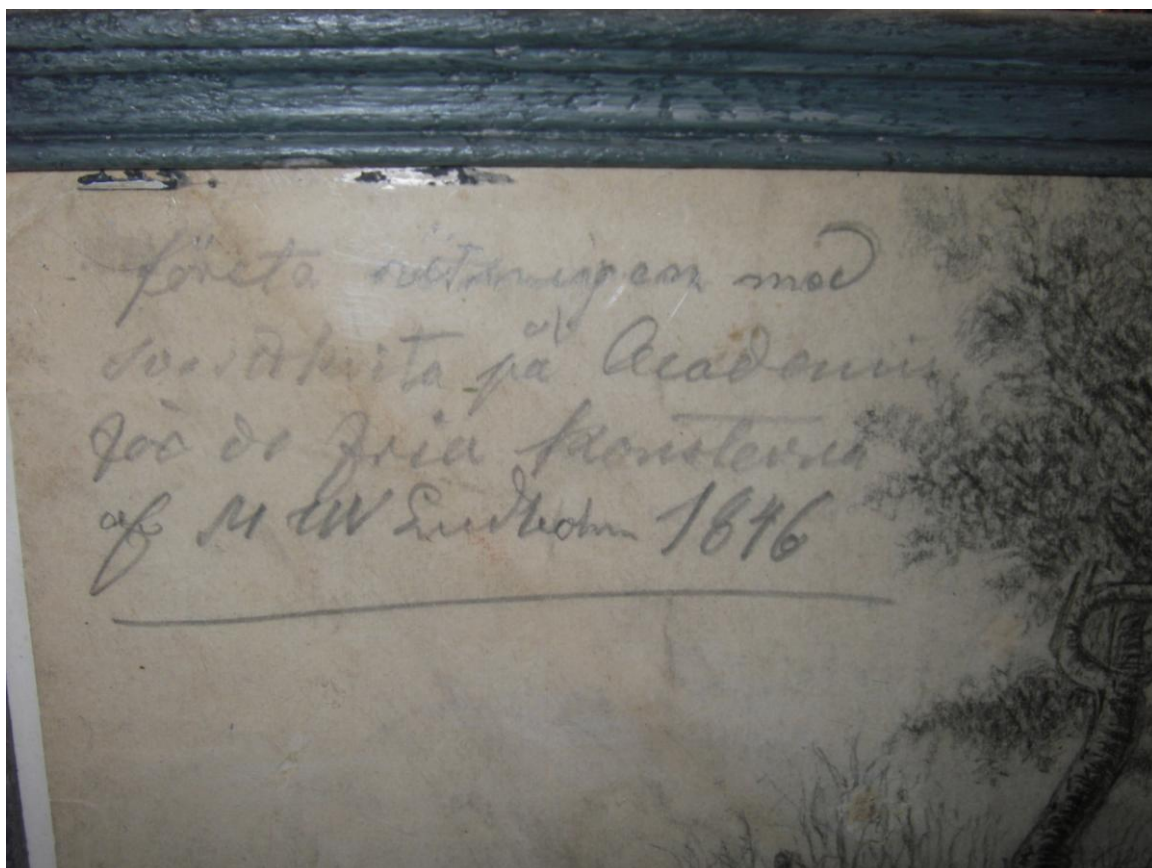 första ritningen med
svartkrita på Academin
för de fria konsterna
af M W Lindholm 1846